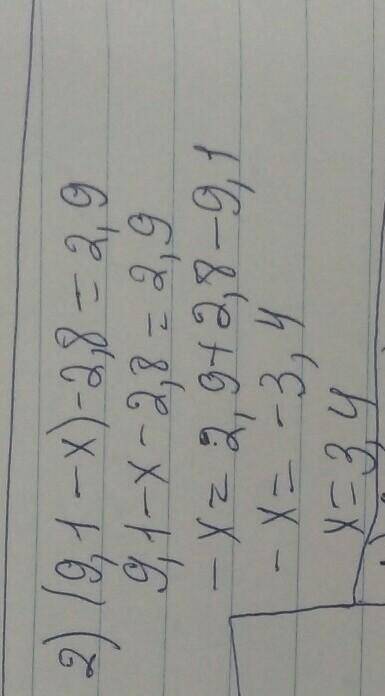 2) (9,1-x)-2,8=2,9
9,1-x-2,8=2,9
-x=2,9+2,8-9,1
-x=-3,4
x=3,4